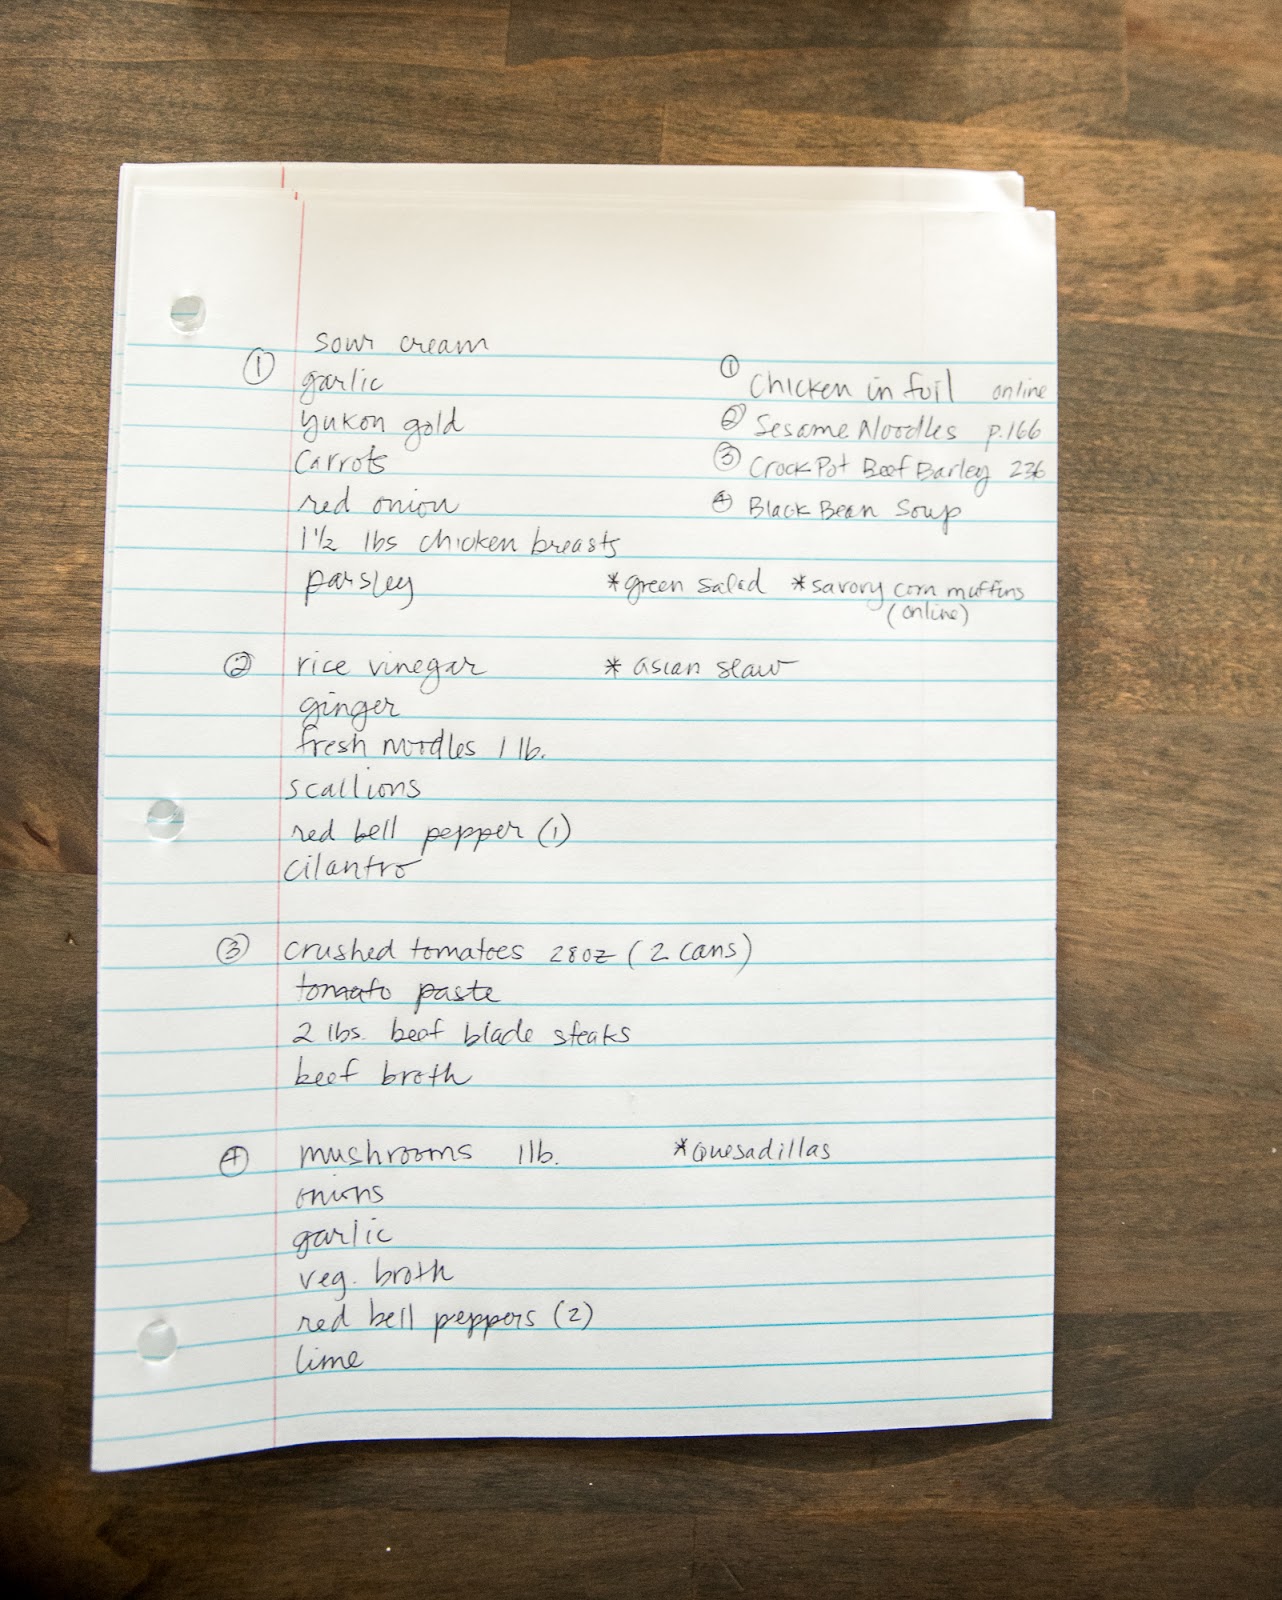 sour cream
① garlic
yukon gold
carrots
red onion
1 1/2 lbs chicken breasts
parsley
① Chicken in foil online
② Sesame Noodles p.166
③ Crock Pot Beef Barley 236
④ Black Bean Soup
*green salad *savory corn muffins
(online)
② rice vinegar * asian slaw
ginger
fresh noodles 1 lb.
scallions
red bell pepper (1)
cilantro
③ crushed tomatoes 28oz (2 cans)
tomato paste
2 lbs. beef blade steaks
beef broth
④ mushrooms 1 lb. *Quesadillas
onions
garlic
veg. broth
red bell peppers (2)
lime